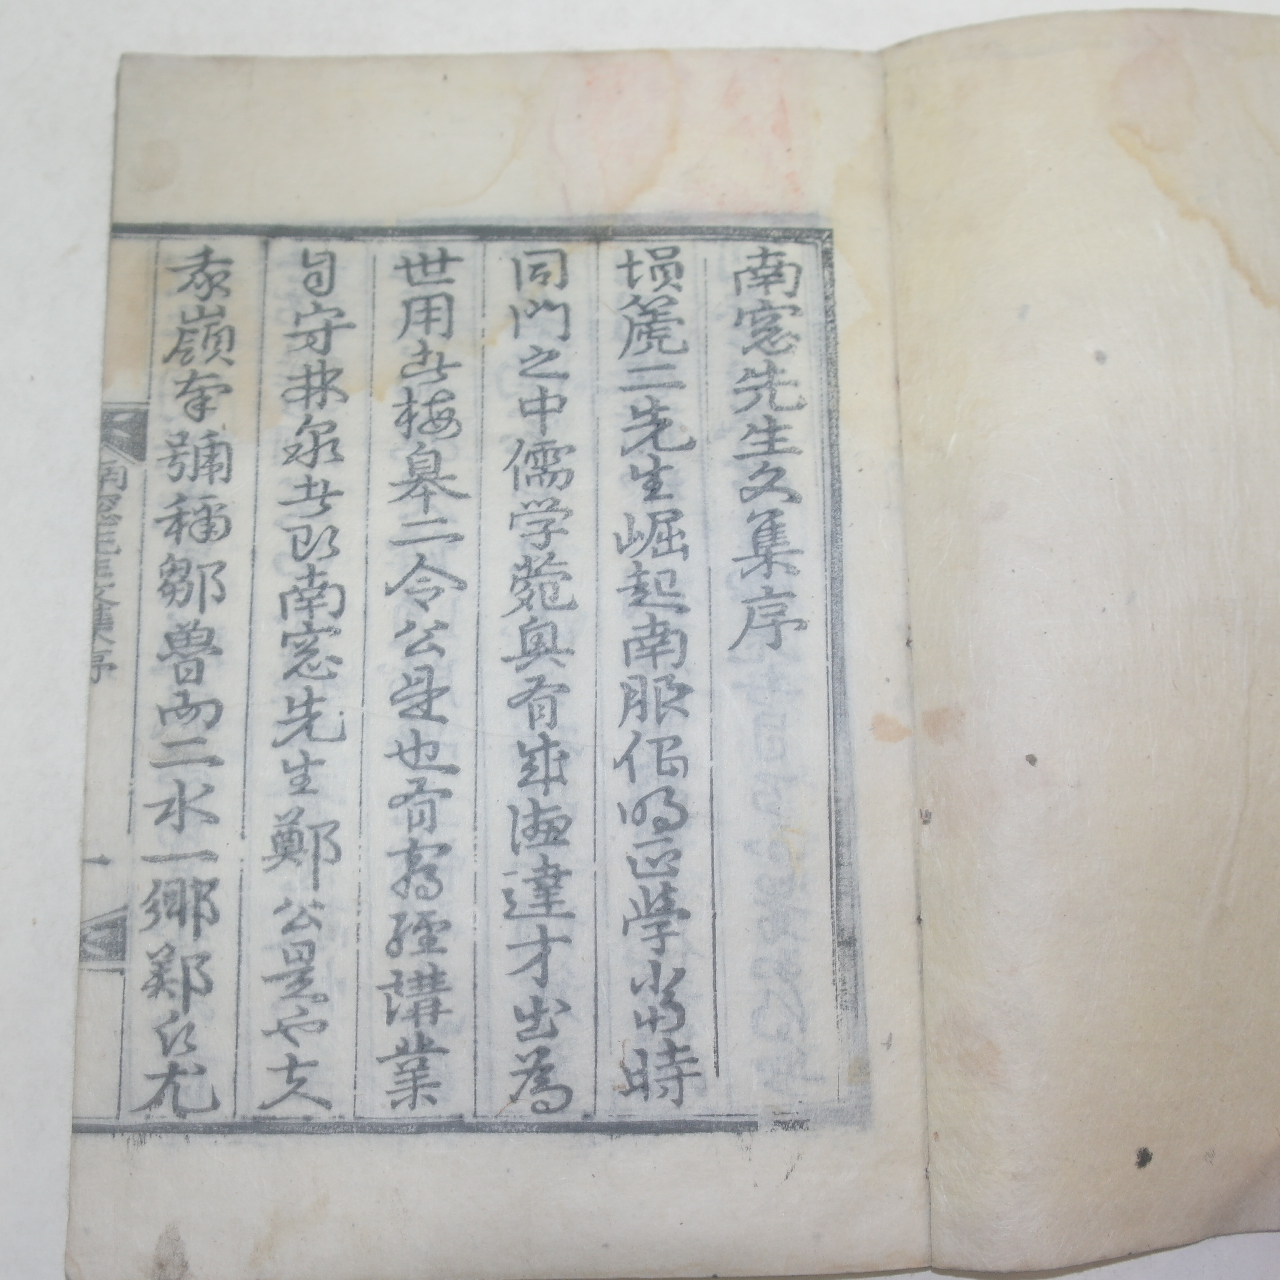 南窓先生文集序
塤篪二先生崛起南服倡明正學當時
同門之中儒学菀奥有成德達才出為
世用者梅皐二令公是也有窮經講業
自守林泉者即南窓先生鄭公是也夫
嶺本號稱鄒魯而二水一鄉鄭氏尤
南窓先生文集序
一